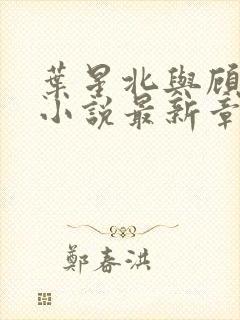 葉星北與顧
小說最新章
鄭春洪